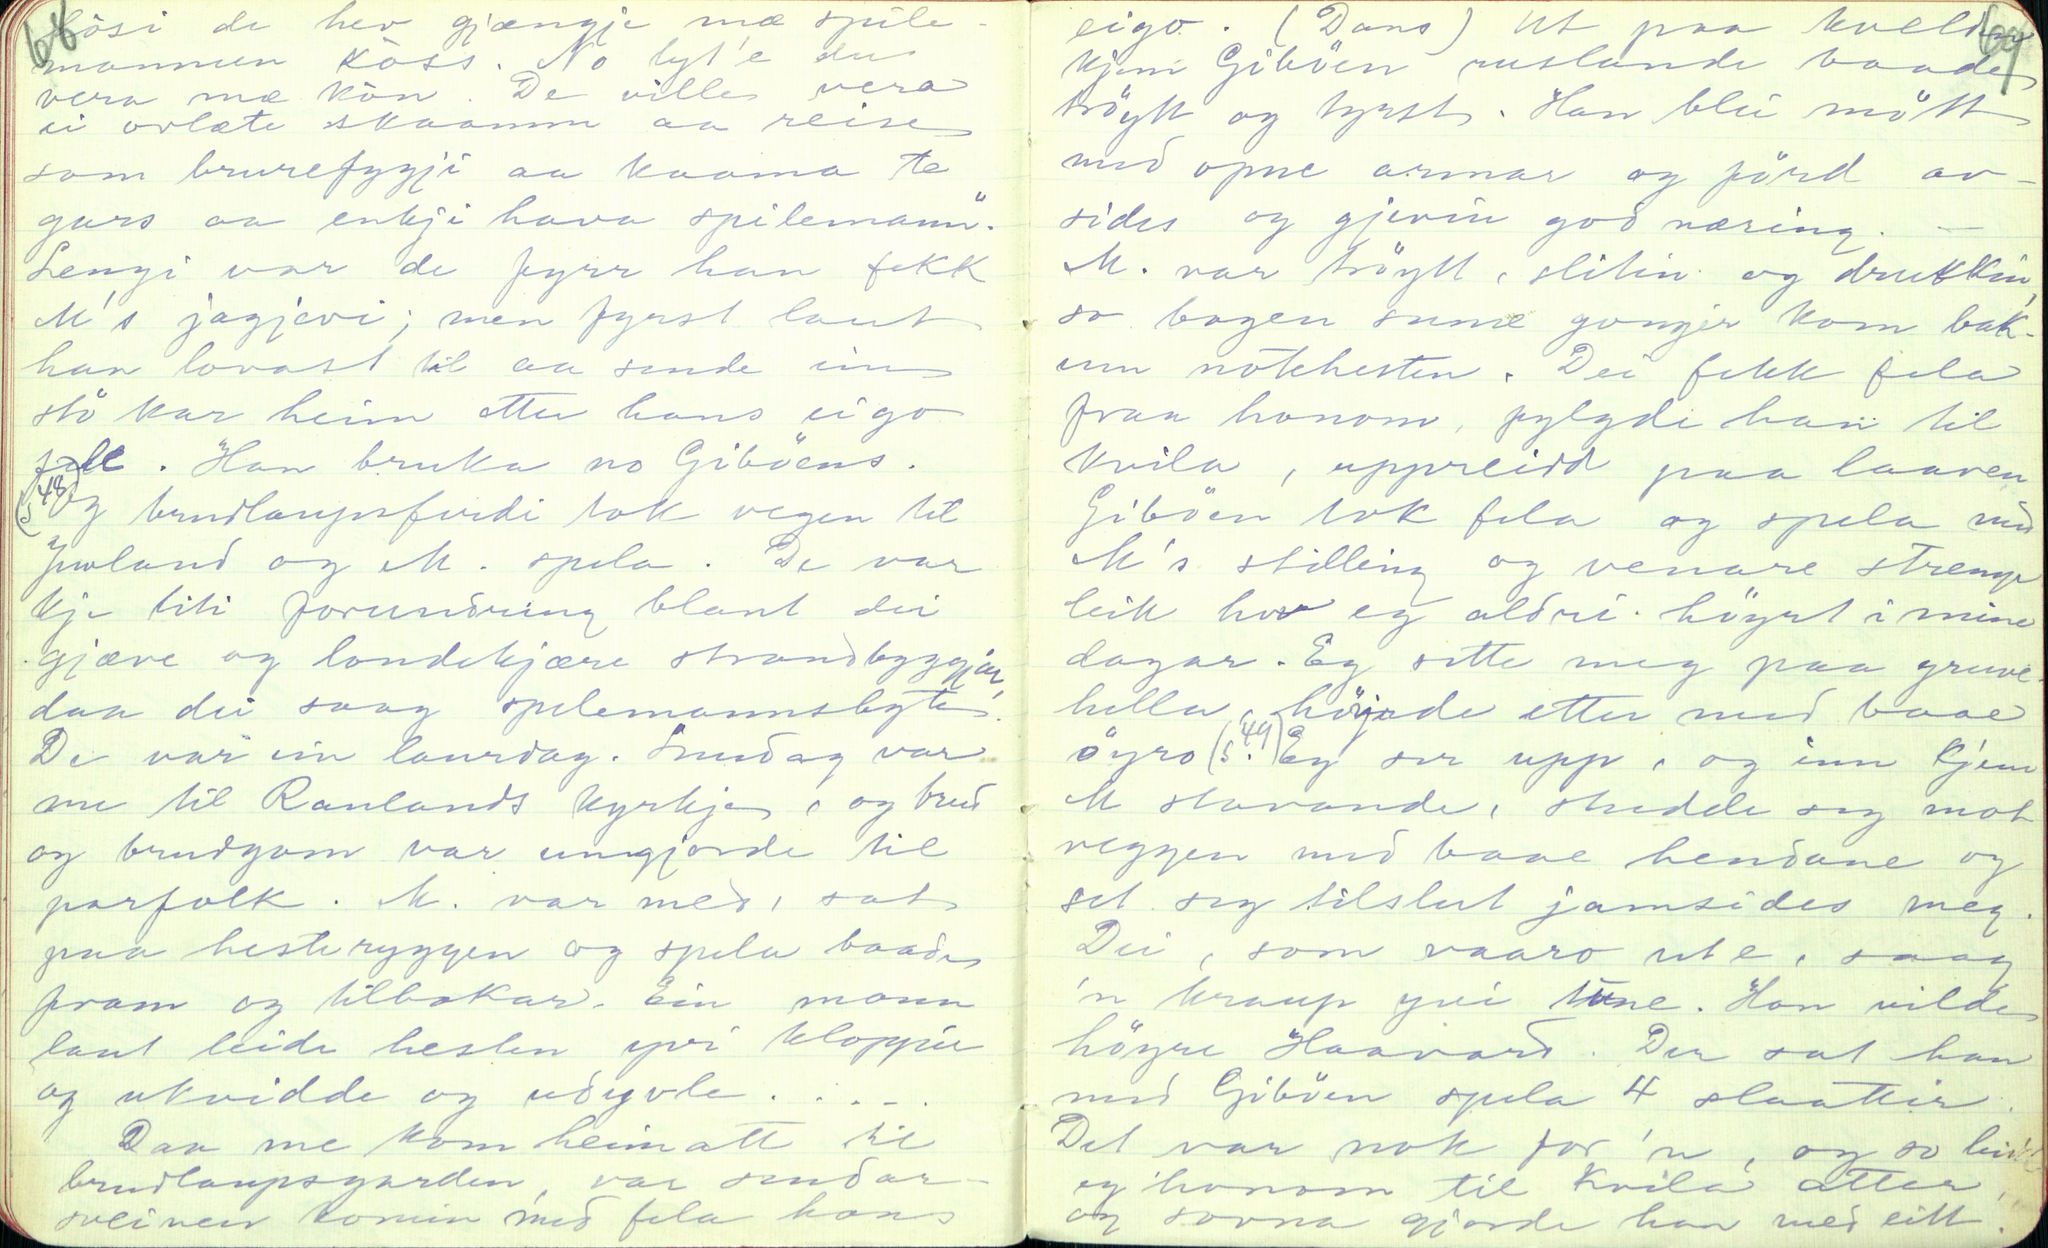 68
kosi de hev gjængje mæ spile-
mannen koss. No lyt'e du
vera mæ kòn. De ville vera
ei ovlæte skaamm aa reise
som brurefygji aa kaama te
gars aa enkji hava spilemann".
Lengi var de fyrr han fekk
M's jagjevi; men fyrst laut
han lovast til aa sende ein
stö kar heim etter hans eigo
fele. Han bruka no Giböens.
(s 48) Og brudlaupsferdi tok vegen til
Juvland og M. spela. De var
kje liti forundring blant dei
gjæve og londekjære strandbyggjar,
daa dei saag spelemannsbyte.
De var ein laurdag. Sundag var
me til Raulands kyrkje, og brud
og brudgom var umgjorde til
parfolk. M. var med, sat
paa hesteryggen og spela baade
fram og tilbakar. Ein mann
laut leide hesten yvi kloppir
og ukvidde og udyvle. . . . .
Daa me kom heimatt til
brudlaupsgarden, var sendar-
sveinen komin med fela hans
69
eigo. (Dans) Ut paa kvelden
kjem Giböen ruslande baade
tröytt og tyrst. Han blei mött
med opne armar og förd av-
sides og gjevin god næring. —
M. var tröytt, slitin og drukkin,
so bogen sume gongir kom bak-
um nótehesten. Dei fekk fela
fraa honom, fylgdi han til
kvila, uppreidd paa laaven
Giböen tok fela og spela med
M's stilling og venare strenge
leik hev eg aldri höyrt i mine
dagar. Eg sette meg paa gruve-
hella, höyrde etter med baae
öyro (s. 49) Eg ser upp, og inn kjem
M stavande, studde seg mot
veggen med baae hendane og
set seg tilslut jamsides meg.
Dei, som vaaro ute, saag
'n kraup yvi tune. Han vilde
höyre Haavard. Der sat han
med Giböen spela 4 slaattir.
Det var nok for 'n, og so leidde
eg honom til kvila atter,
og sovna gjorde han med eitt.